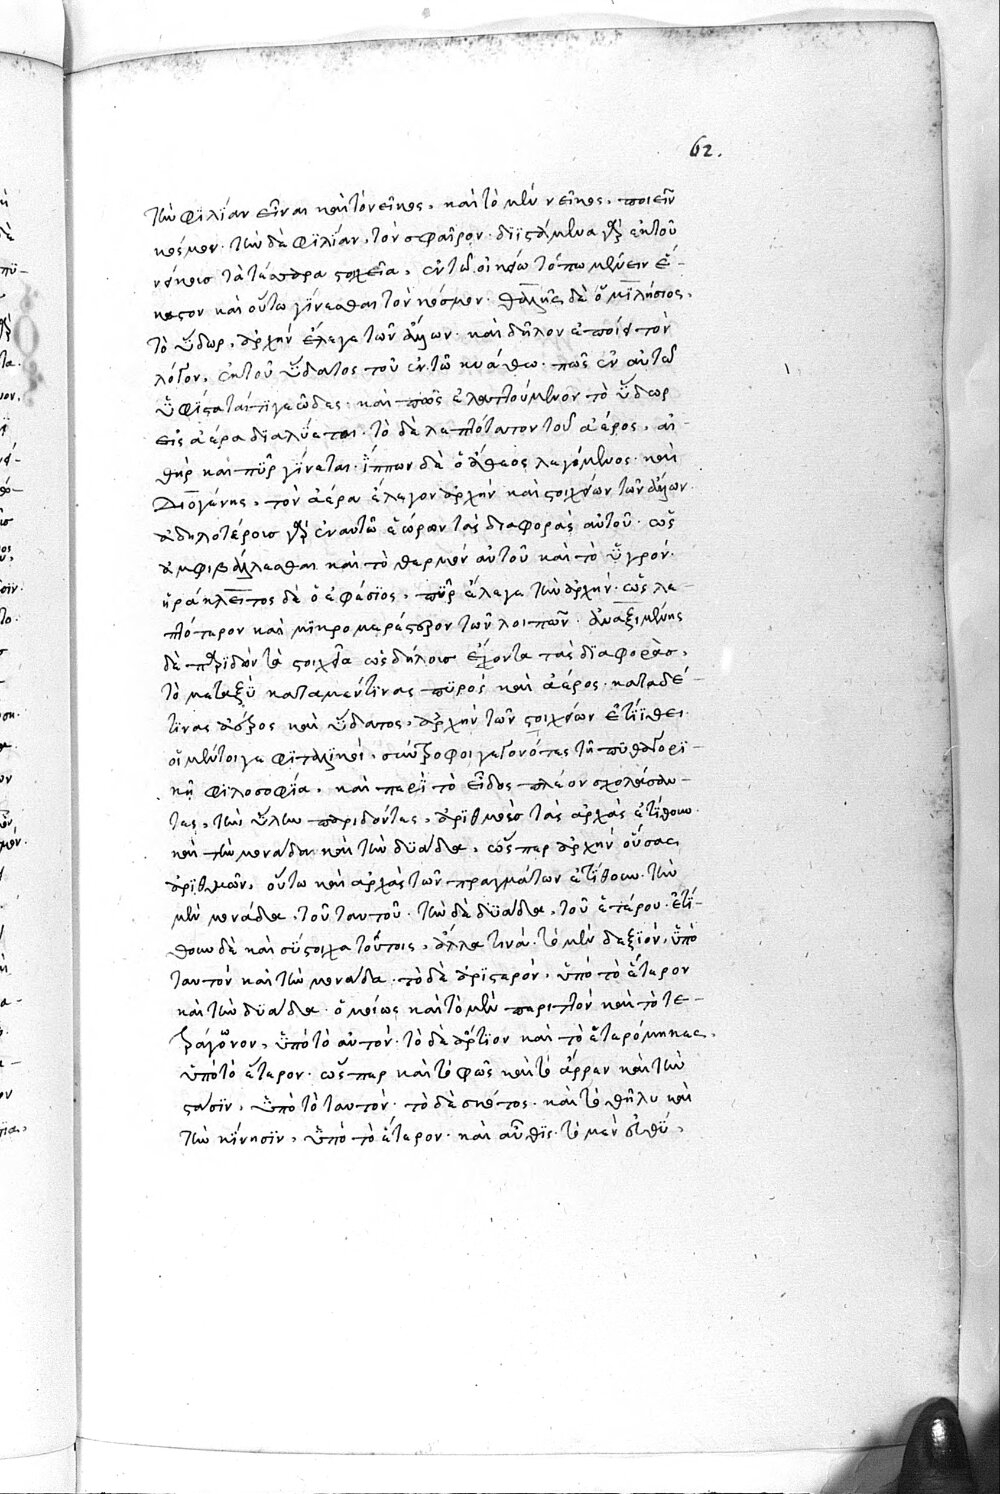 62.
τὴν φϊλίαν εἶναι καὶ τὸ νεῖκος. καὶ τὸ μὲν νεῖκος, ποιεῖν
κόσμον. τὴν δὲ φϊλίαν, τὸν σφαῖρον. δϊϊστάμενα γὰρ ἐκ τοῦ
νείκους τὰ τέσσαρα στοιχεῖα, ἐν τῶ οἰκείω τόπω μένειν ἕ-
καστον καὶ οὕτω γίνεσθαι τὸν κόσμον. θαλῆς δὲ ὁ μϊλήσιος,
τὸ ὕδωρ, ἀρχὴν ἔλεγε τῶν ὅλων. καὶ δῆλον ἐποίει τὸν
λόγον, ἐκ τοῦ ὕδατος τοῦ ἐν τῶ κυάθω. πῶς ἐν αὐτῶ
ὑφίσταταί τι γεῶδες. καὶ πῶς ἐλαττούμενον τὸ ὕδωρ
εἰς ἀέρα διαλύεται. τὸ δὲ λεπτότατον τοῦ ἀέρος, αἰ-
θὴρ καὶ πῦρ γίνεται. ἵππων δὲ ὁ ἄθεος λεγόμενος. καὶ
Διογένης, τὸν ἀέρα ἔλεγον ἀρχὴν καὶ στοιχεῖον τῶν ὅλων.
ἀδηλοτέρους γὰρ ἐν αὐτῶ ἑώρων τὰς διαφορὰς αὐτοῦ. ὡς
ἀμφιβάλλεσθαι καὶ τὸ θερμὸν αὐτοῦ καὶ τὸ ὑγρόν.
ἡράκλειτος δὲ ὁ ἐφέσϊος, πῦρ ἔλεγε τὴν ἀρχήν. ὡς λε-
πτότερον καὶ μϊκρομερέστερον τῶν λοιπῶν. ἀναξιμένης
δὲ περϊιδὼν τὰ στοιχεῖα ὡς δήλους ἔχοντα τὰς διαφορὰς,
τὸ μεταξὺ κατα μέν τινας πυρὸς καὶ ἀέρος. κατα δέ
τινας ἀέρος καὶ ὕδατος, ἀρχὴν τῶν στοιχείων ἐτίθει.
οἱ μέντοι γε φϊταλϊκοὶ, σύντροφοι γεγονότες τῆ πυθαγορϊ-
κῆ φϊλοσοφία, καὶ περὶ τὸ εἶδος πλέον σχολάσαν-
τες, τὴν ὕλην παριδόντες, ἀριθμοὺς τὰς ἀρχὰς ἐτίθουν.
καὶ τὴν μονάδα καὶ τὴν δϋάδα, ὥσπερ ἀρχὴν οὔσας,
ἀρϊθμῶν, οὕτω καὶ ἀρχὰς τῶν πραγμάτων ἐτίθουν. τὴν
μὲν μονάδα, τοῦ ταυτοῦ. τὴν δὲ δϋάδα, τοῦ ἑτέρου. ἐτί-
θουν δὲ καὶ σύστοιχα τούτοις, ἄλλα τινά. τὸ μὲν δεξϊὸν, ὑπὸ
ταυτὸν καὶ τὴν μονάδα. τὸ δὲ ἀρϊστερὸν, ὑπὸ τὸ ἕτερον
καὶ τὴν δϋάδα. ὁμοίως καὶ τὸ μὲν περιττὸν καὶ τὸ τε-
τράγωνον, ὑπὸ τὸ αὐτόν. τὸ δὲ ἄρτιον καὶ τὸ ἑτερόμηκες,
ὑπὸ τὸ ἕτερον. ὥσπερ καὶ τὸ φῶς καὶ τὸ ἄρρεν καὶ τὴν
στάσϊν, ὑπὸ τὸ ταυτόν. τὸ δὲ σκότος. καὶ τὸ θῆλυ καὶ
τὴν κίνησϊν, ὑπὸ τὸ ἕτερον. καὶ αὖθϊς. τὸ μὲν εὐθὺ,